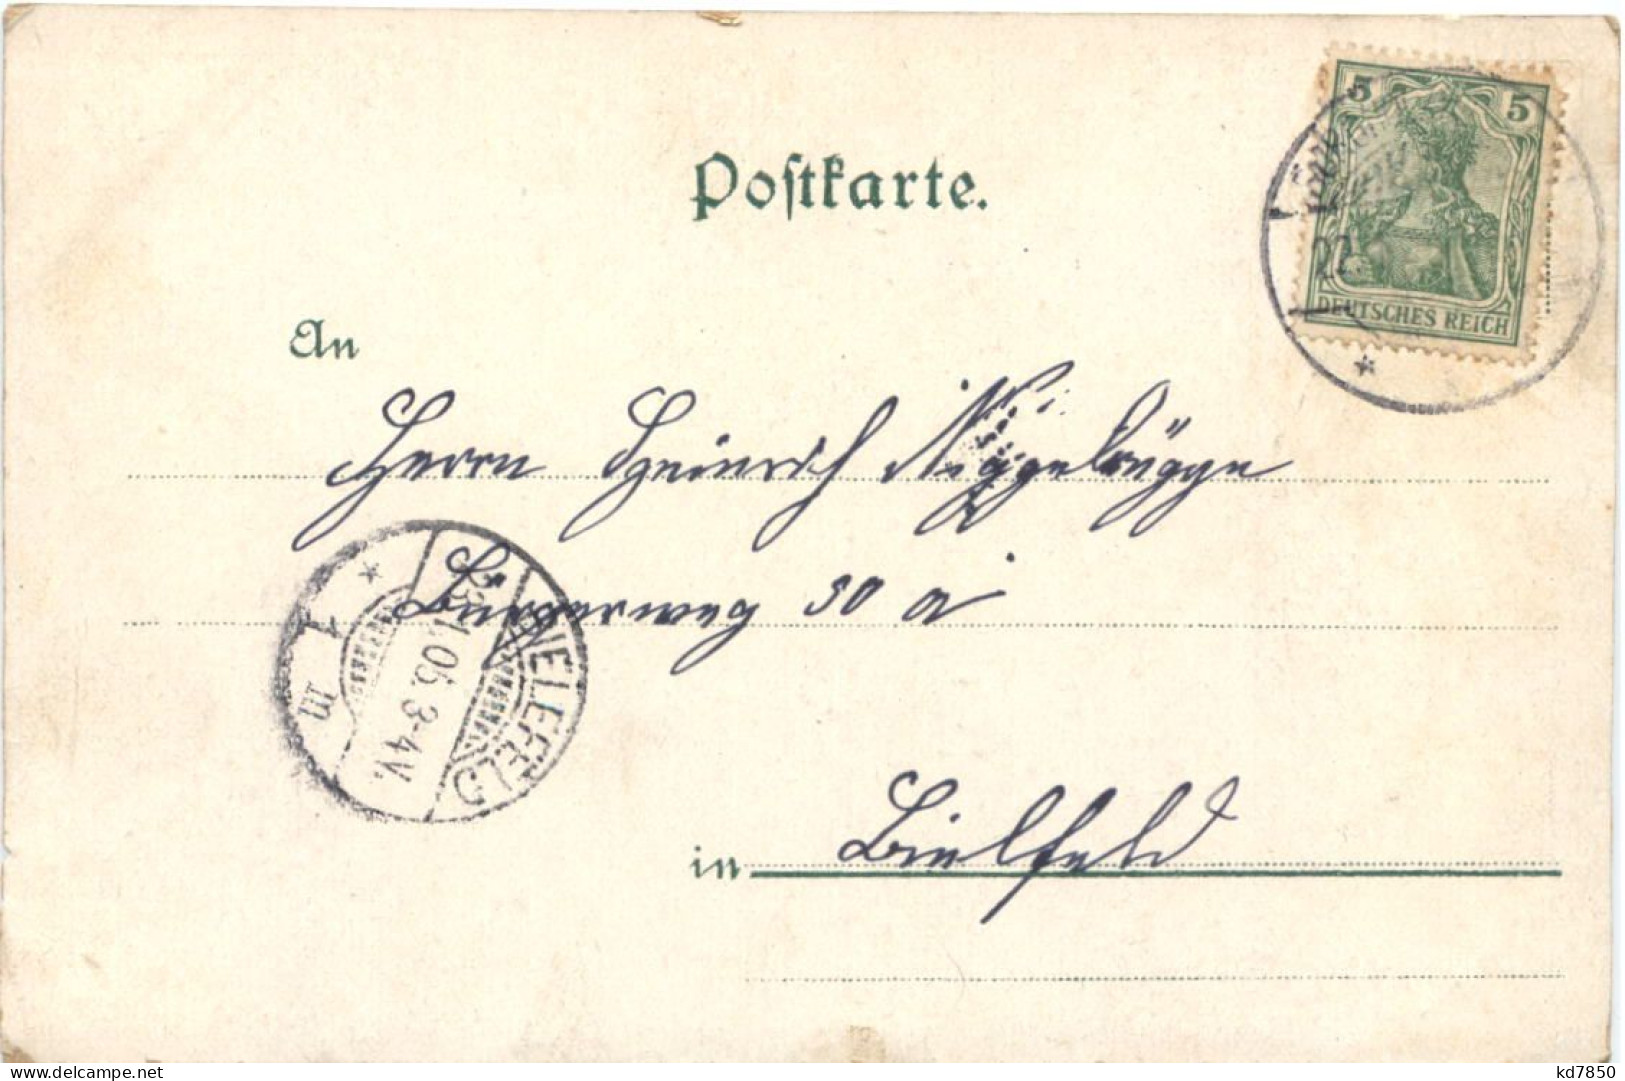 Postkarte.
5 5
DEUTSCHES REICH
22.
An
Herrn Heinrich Niggebrügge
Bürgerweg 50 a
BIELEFELD
23.1.05. 3-4V.
1 m
in Bielfeld
delcampe.net
kd7850